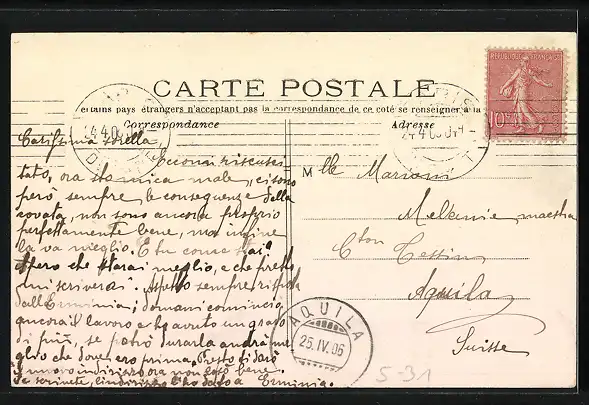 CARTE POSTALE
Certains pays étrangers n'acceptant pas la correspondance de ce coté se renseigner à la
Correspondance
Adresse
REPUBLIQUE FRANÇAISE
10
Carissima sorella,
Eccomi risusci-
tato, ora stamica male, ci sono
però sempre le conseguenze della
covata, non sono ancora proprio
perfettamente bene, ma infine
la va meglio. E tu come stai?
Spero che starai meglio, e che presto
mi scriverai. Aspetto sempre risposta
dall'Erminia; domani comincio
ancora il lavoro e ho avuto un grado
di più, se potrò durarla andrà me-
glio che dove ero prima. Presto ti darò
il nuovo indirizzo ora non
Erminia.
Mlle Marioni
maestra
Cton Tessin
Aquila
Suisse
AQUILA
25.IV.06
5-31